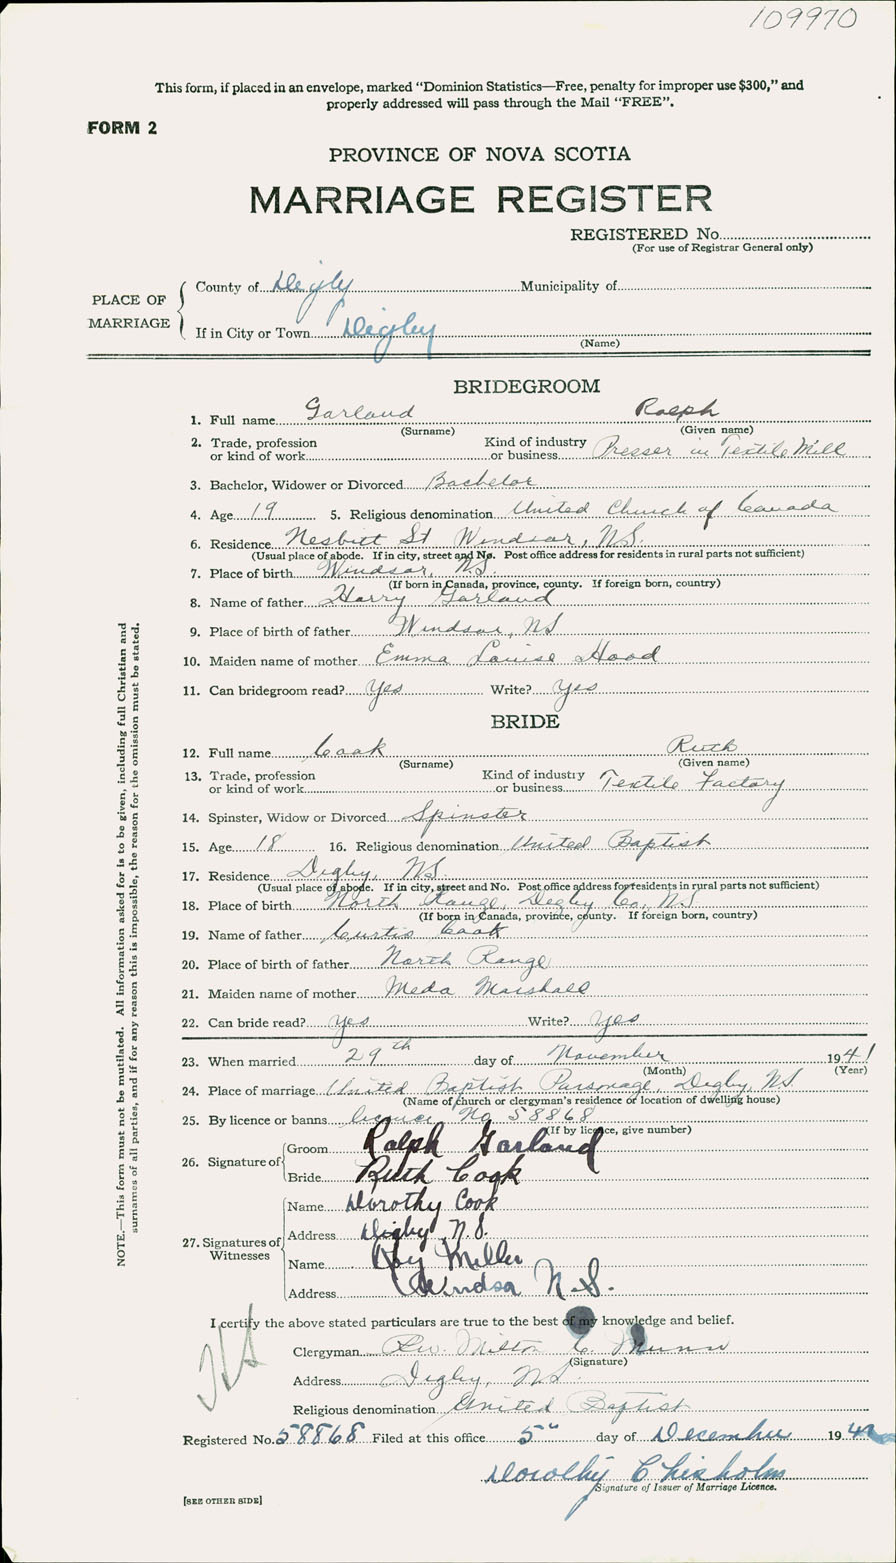 109970
This form, if placed in an envelope, marked "Dominion Statistics—Free, penalty for improper use $300," and
properly addressed will pass through the Mail "FREE".
FORM 2
PROVINCE OF NOVA SCOTIA
MARRIAGE REGISTER
REGISTERED No.
(For use of Registrar General only)
PLACE OF MARRIAGE
County of Digby Municipality of
If in City or Town Digby
(Name)
BRIDEGROOM
1. Full name Garland Ralph
(Surname) (Given name)
2. Trade, profession Kind of industry
or kind of work or business Presser in Textile Mill
3. Bachelor, Widower or Divorced Bachelor
4. Age 19 5. Religious denomination United Church of Canada
6. Residence Nesbitt St Windsor, N.S.
(Usual place of abode. If in city, street and No. Post office address for residents in rural parts not sufficient)
7. Place of birth Windsor, N.S.
(If born in Canada, province, county. If foreign born, country)
8. Name of father Harry Garland
9. Place of birth of father Windsor, NS
10. Maiden name of mother Emma Louise Hood
11. Can bridegroom read? Yes Write? Yes
BRIDE
12. Full name Cook Ruth
(Surname) (Given name)
13. Trade, profession Kind of industry
or kind of work or business Textile Factory
14. Spinster, Widow or Divorced Spinster
15. Age 18 16. Religious denomination United Baptist
17. Residence Digby, N.S.
(Usual place of abode. If in city, street and No. Post office address for residents in rural parts not sufficient)
18. Place of birth North Range, Digby Co., N.S
(If born in Canada, province, county. If foreign born, country)
19. Name of father Curtis Cook
20. Place of birth of father North Range
21. Maiden name of mother Meda Marshall
22. Can bride read? yes Write? yes
23. When married 29th day of November 1941
(Month) (Year)
24. Place of marriage United Baptist Parsonage, Digby, N.S.
(Name of church or clergyman's residence or location of dwelling house)
25. By licence or banns licence No 58868
(If by licence, give number)
26. Signature of
Groom Ralph Garland
Bride Ruth Cook
27. Signatures of Witnesses
Name Dorothy Cook
Address Digby N.S.
Name Miller
Address Windsor N.S.
I certify the above stated particulars are true to the best of my knowledge and belief.
Clergyman Rev. Milton C. Munn
(Signature)
Address Digby, N.S.
Religious denomination United Baptist
Registered No. 58868 Filed at this office 5" day of December 194
Dorothy Chisholm
Signature of Issuer of Marriage Licence.
[SEE OTHER SIDE]
NOTE.—This form must not be mutilated. All information asked for is to be given, including full Christian and
surnames of all parties, and if for any reason this is impossible, the reason for the omission must be stated.